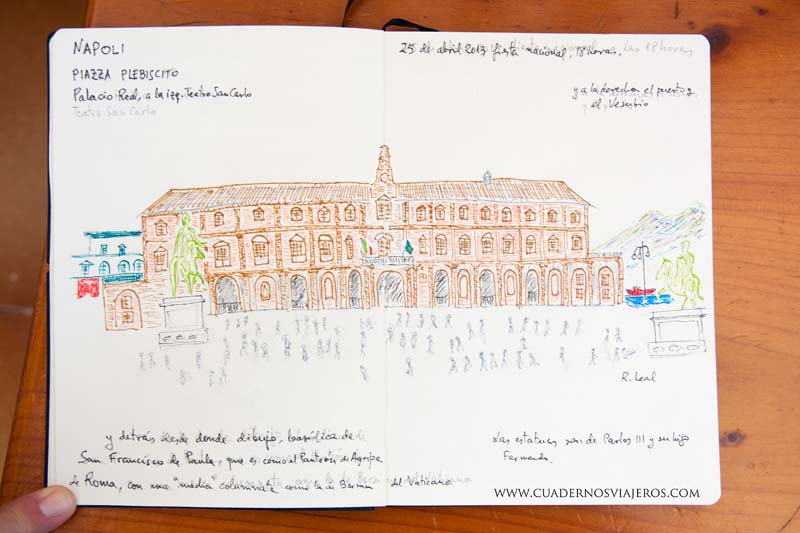 NAPOLI
PIAZZA PLEBISCITO
Palacio Real, a la izq. Teatro San Carlo
Teatro San Carlo
25 de abril 2013 fiesta nacional, 18 horas.
las 18 horas
y a la derecha el puerto y
el Vesubio
R. Leal
y detrás desde donde dibujo, basílica de
San Francisco de Paula, que es como el Panteón de Agripa
de Roma, con una "media" columnata como la de Bernini del Vaticano.
Las estatuas son de Carlos III y su hijo
Fernando.
WWW.CUADERNOSVIAJEROS.COM